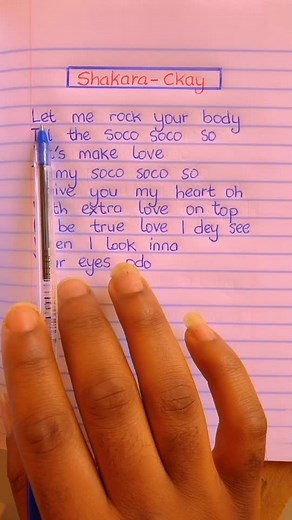 Shakara - Ckay
Let me rock your body
the soco soco so
make love
my soco soco so
you my heart oh
extra love on top
be true love I dey see
I look inna
eyes